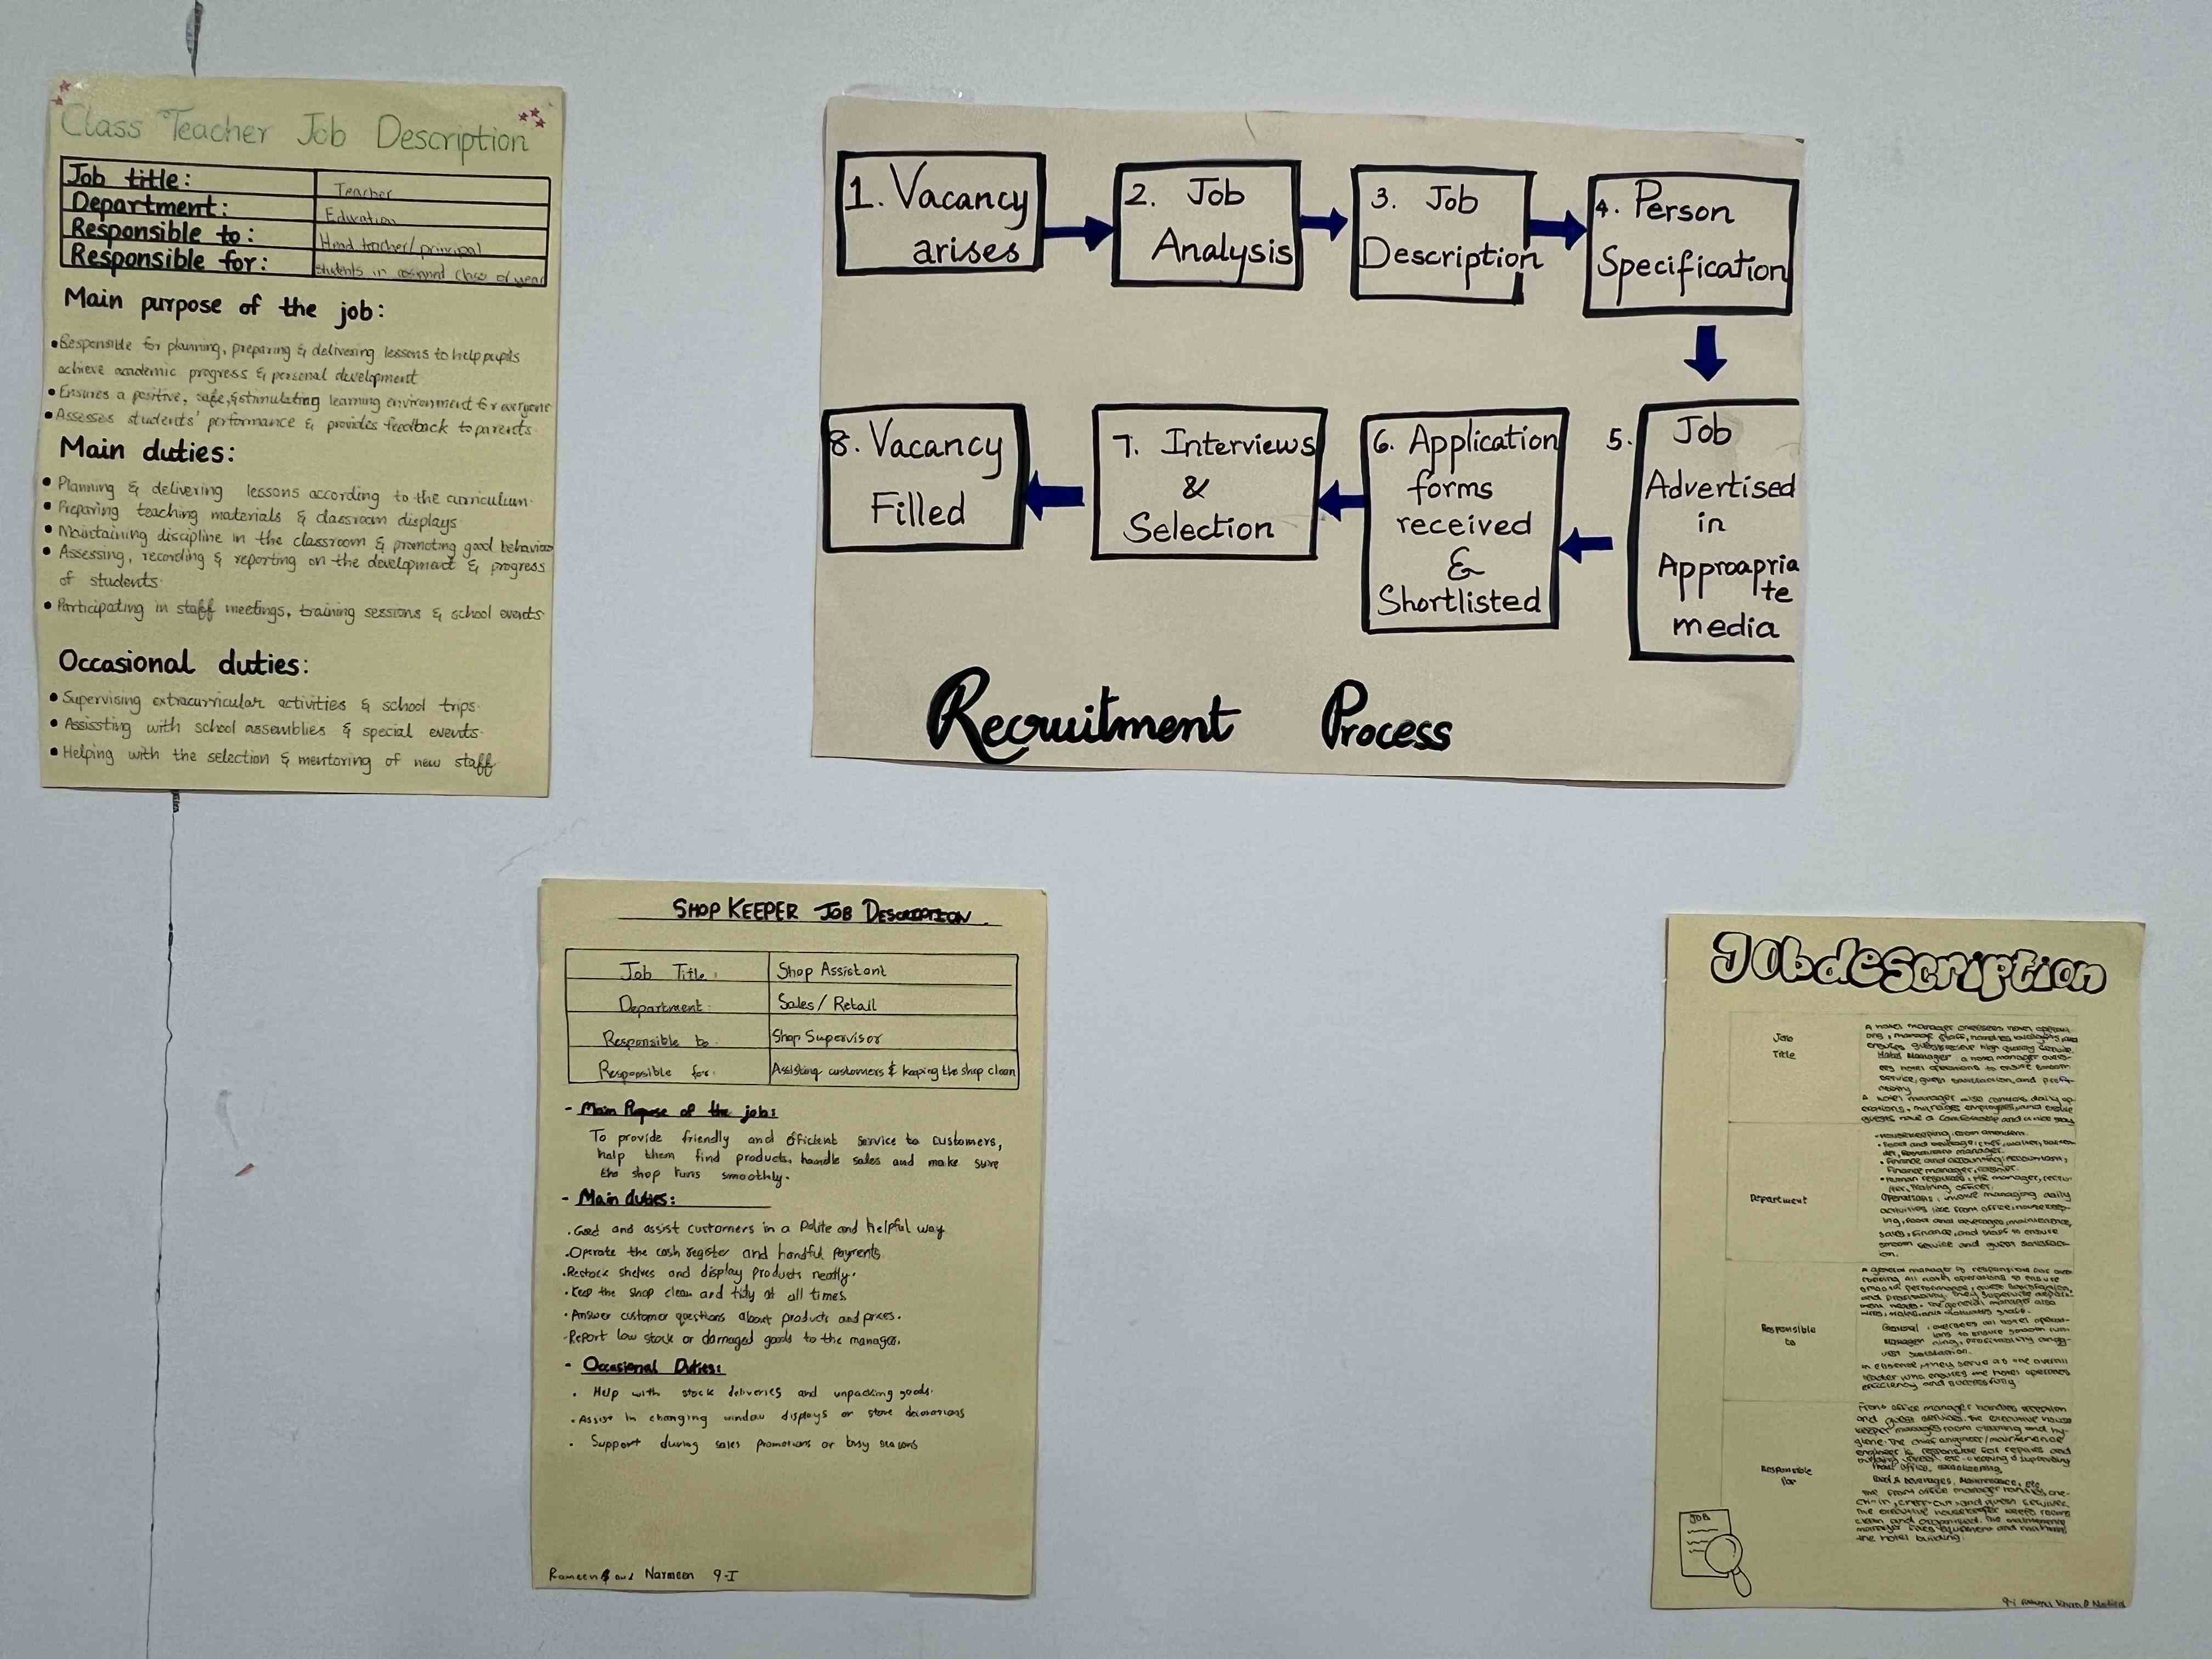 Class Teacher Job Description
Job title: Teacher
Department: Education
Responsible to: Head teacher/principal
Responsible for: students in assigned class or year
Main purpose of the job:
• Responsible for planning, preparing & delivering lessons to help pupils
achieve academic progress & personal development
• Ensures a positive, safe, & stimulating learning environment for everyone
• Assesses students' performance & provides feedback to parents.
Main duties:
• Planning & delivering lessons according to the curriculum.
• Preparing teaching materials & classroom displays
• Maintaining discipline in the classroom & promoting good behavior
• Assessing, recording & reporting on the development & progress
of students.
• Participating in staff meetings, training sessions & school events
Occasional duties:
• Supervising extracurricular activities & school trips.
• Assissting with school assemblies & special events.
• Helping with the selection & mentoring of new staff
1. Vacancy
arises
2. Job
Analysis
3. Job
Description
4. Person
Specification
5. Job
Advertised
in
Approapria
te
media
6. Application
forms
received
&
Shortlisted
7. Interviews
&
Selection
8. Vacancy
Filled
Recruitment Process
SHOP KEEPER JOB DESCRIPTION
Job Title: Shop Assistant
Department: Sales/Retail
Responsible to: Shop Supervisor
Responsible for: Assisting customers & keeping the shop clean
- Main Purpose of the job:
To provide friendly and efficient service to customers,
help them find products, handle sales and make sure
the shop runs smoothly.
- Main duties:
. and assist customers in a Polite and helpful way
. Operate the cash register and handful Payments
. Restock shelves and display products neatly.
. Keep the shop clean and tidy at all times
. Answer customer questions about products and prices.
- Report low stock or damaged goods to the manager.
- Occasional Duties:
. Help with stock deliveries and unpacking goods.
. Assist in changing window displays or store decorations
. Support during sales promotions or busy seasons
Rameen and Narmeen 9-I
Jobdescription
Job
Title
A hotel manager oversees hotel operati-
ons, manage staff, handles
ensures high quality service.
Hotel Manager a hotel manager overs-
ees hotel operations to ensure smooth
service, guest satisfaction, and profit-
A hotel manager also controls daily op-
erations, manages employees, and
guests have a comfortable and nice stay
Department
• Housekeeping, room attendent.
• Food and beverage: chef, waiter,
manager.
• Finance and accounting: accountant,
Finance manager, cashier.
• Human resources: HR manager,
training officer.
Operations: involve managing daily
activities like front office, housekeep-
ing, food and beverages, maintenence,
sales, finance, and staff to ensure
smooth service and guest satisfact-
ion.
Responsible
to
A general manager is responsible for
all hotel operations to ensure
performance, guest satisfaction,
and profitability. They supervise depart-
ment heads. The general manager also
hires, trains, and motivates staff.
General : oversees all hotel operat-
ions to ensure smooth run-
Manager ning, profitability and g-
uest satisfaction.
in essence, they serve as the overall
leader who ensures the hotel operates
efficiency and successfully
Responsible
for
Front office manager handles reception
and guest services. The executive house
keeper manages room cleaning and hy-
giene. The chief engineer/maintenence
engineer is responsible for repairs and
front office, housekeeping
food & beverages, Maintenance, etc
The front office manager handles che-
ck-in, check-out and guest services.
The executive housekeeper keeps rooms
clean and organised. The maintenence
manager fixes equipment and maintains
the hotel building.
JOB
9-I